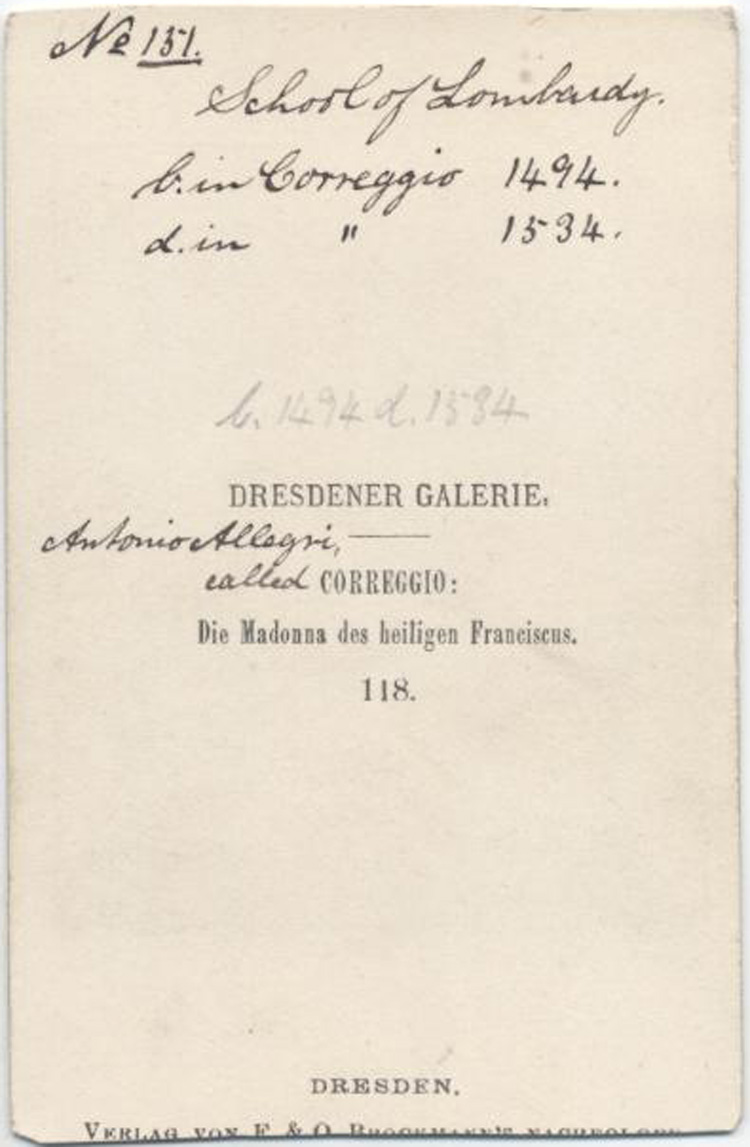 No 151.
School of Lombardy.
b. in Correggio 1494.
d. in " 1534.
b. 1494 d. 1534
DRESDENER GALERIE.
Antonio Allegri,
called CORREGGIO:
Die Madonna des heiligen Franciscus.
118.
DRESDEN.
VERLAG VON F. & O. BROCKMANN'S NACHFOLGER